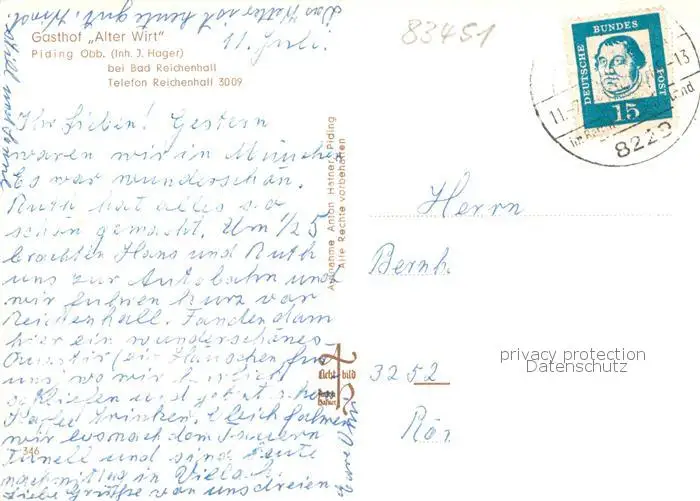 Das Wetter ist heute gut.
Gasthof „Alter Wirt"
Piding Obb. (Inh. J. Hager)
bei Bad Reichenhall
Telefon Reichenhall 3009
11. Juli.
83451
DEUTSCHE BUNDES POST
15
8229
Ihr Lieben! Gestern
waren wir in München
Es war wunderschön.
Ruth hat alles so
schön gemacht. Um 1/2 5
brachten Hans und Ruth
uns zur Autobahn und
wir fuhren kurz vor
Reichenhall. Fanden dann
hier ein wunderschönes
Quartir (ein Häuschen für
uns, wo wir herrlich
schliefen und jetzt schon
Kaffee trinken. Gleich fahren
wir los nach dem Tauern
Tunell und sind heute
nachmittag in Villach.
Liebe Grüße von uns dreien
346
Aufnahme Anton Hafner, Piding
Alle Rechte vorbehalten
Lichtbild
Hafner
Herrn
Bernh.
3252
privacy protection
Datenschutz